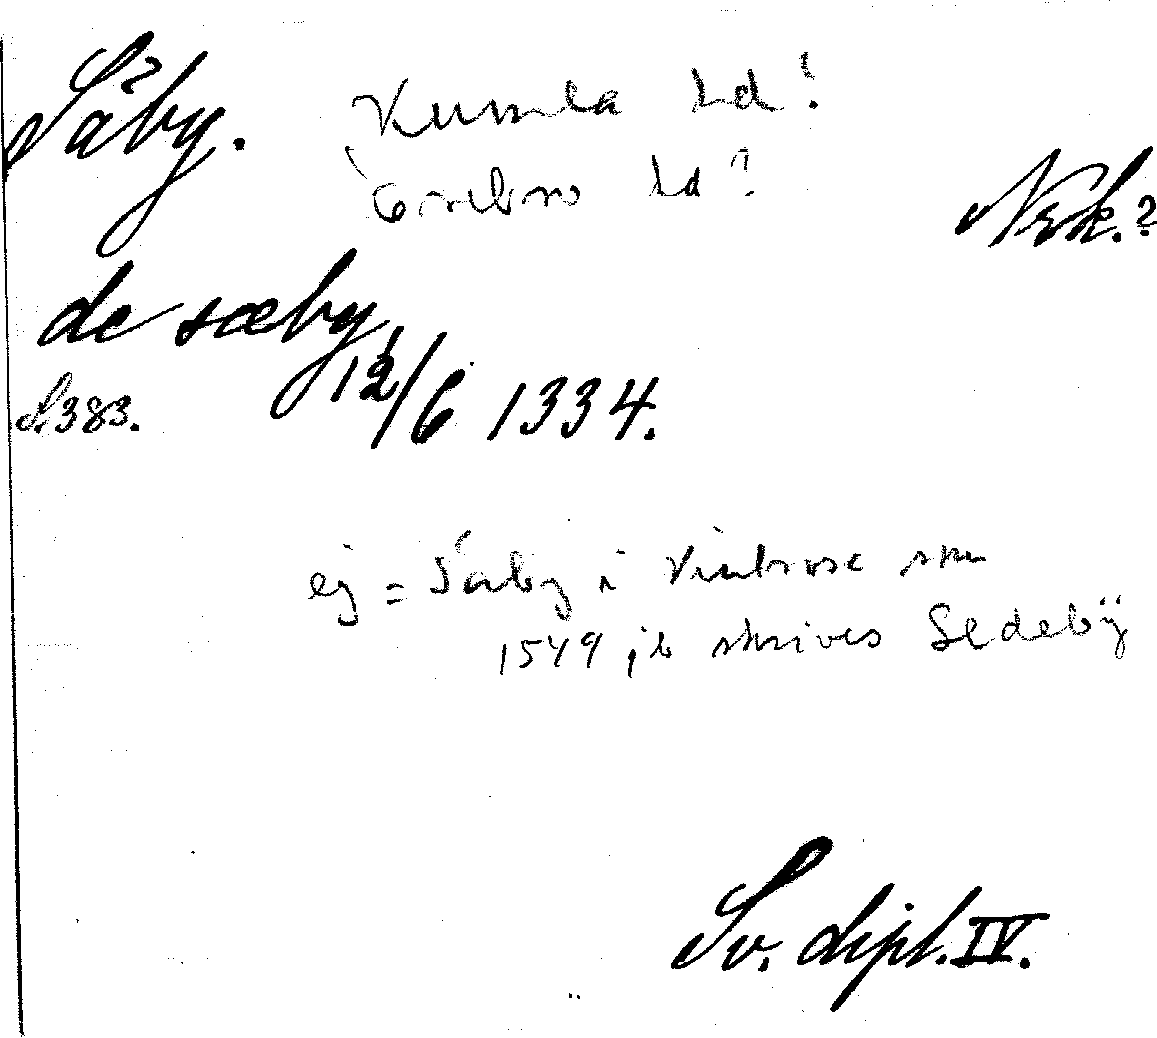 Säby. Kumla hd?
Örebro hd?
Nrk.?
de sæby 12/6 1334.
S. 383.
ej = Säby i Vintrosa skn
1549 jb skrives Sedebÿ
Sv. dipl. IV.